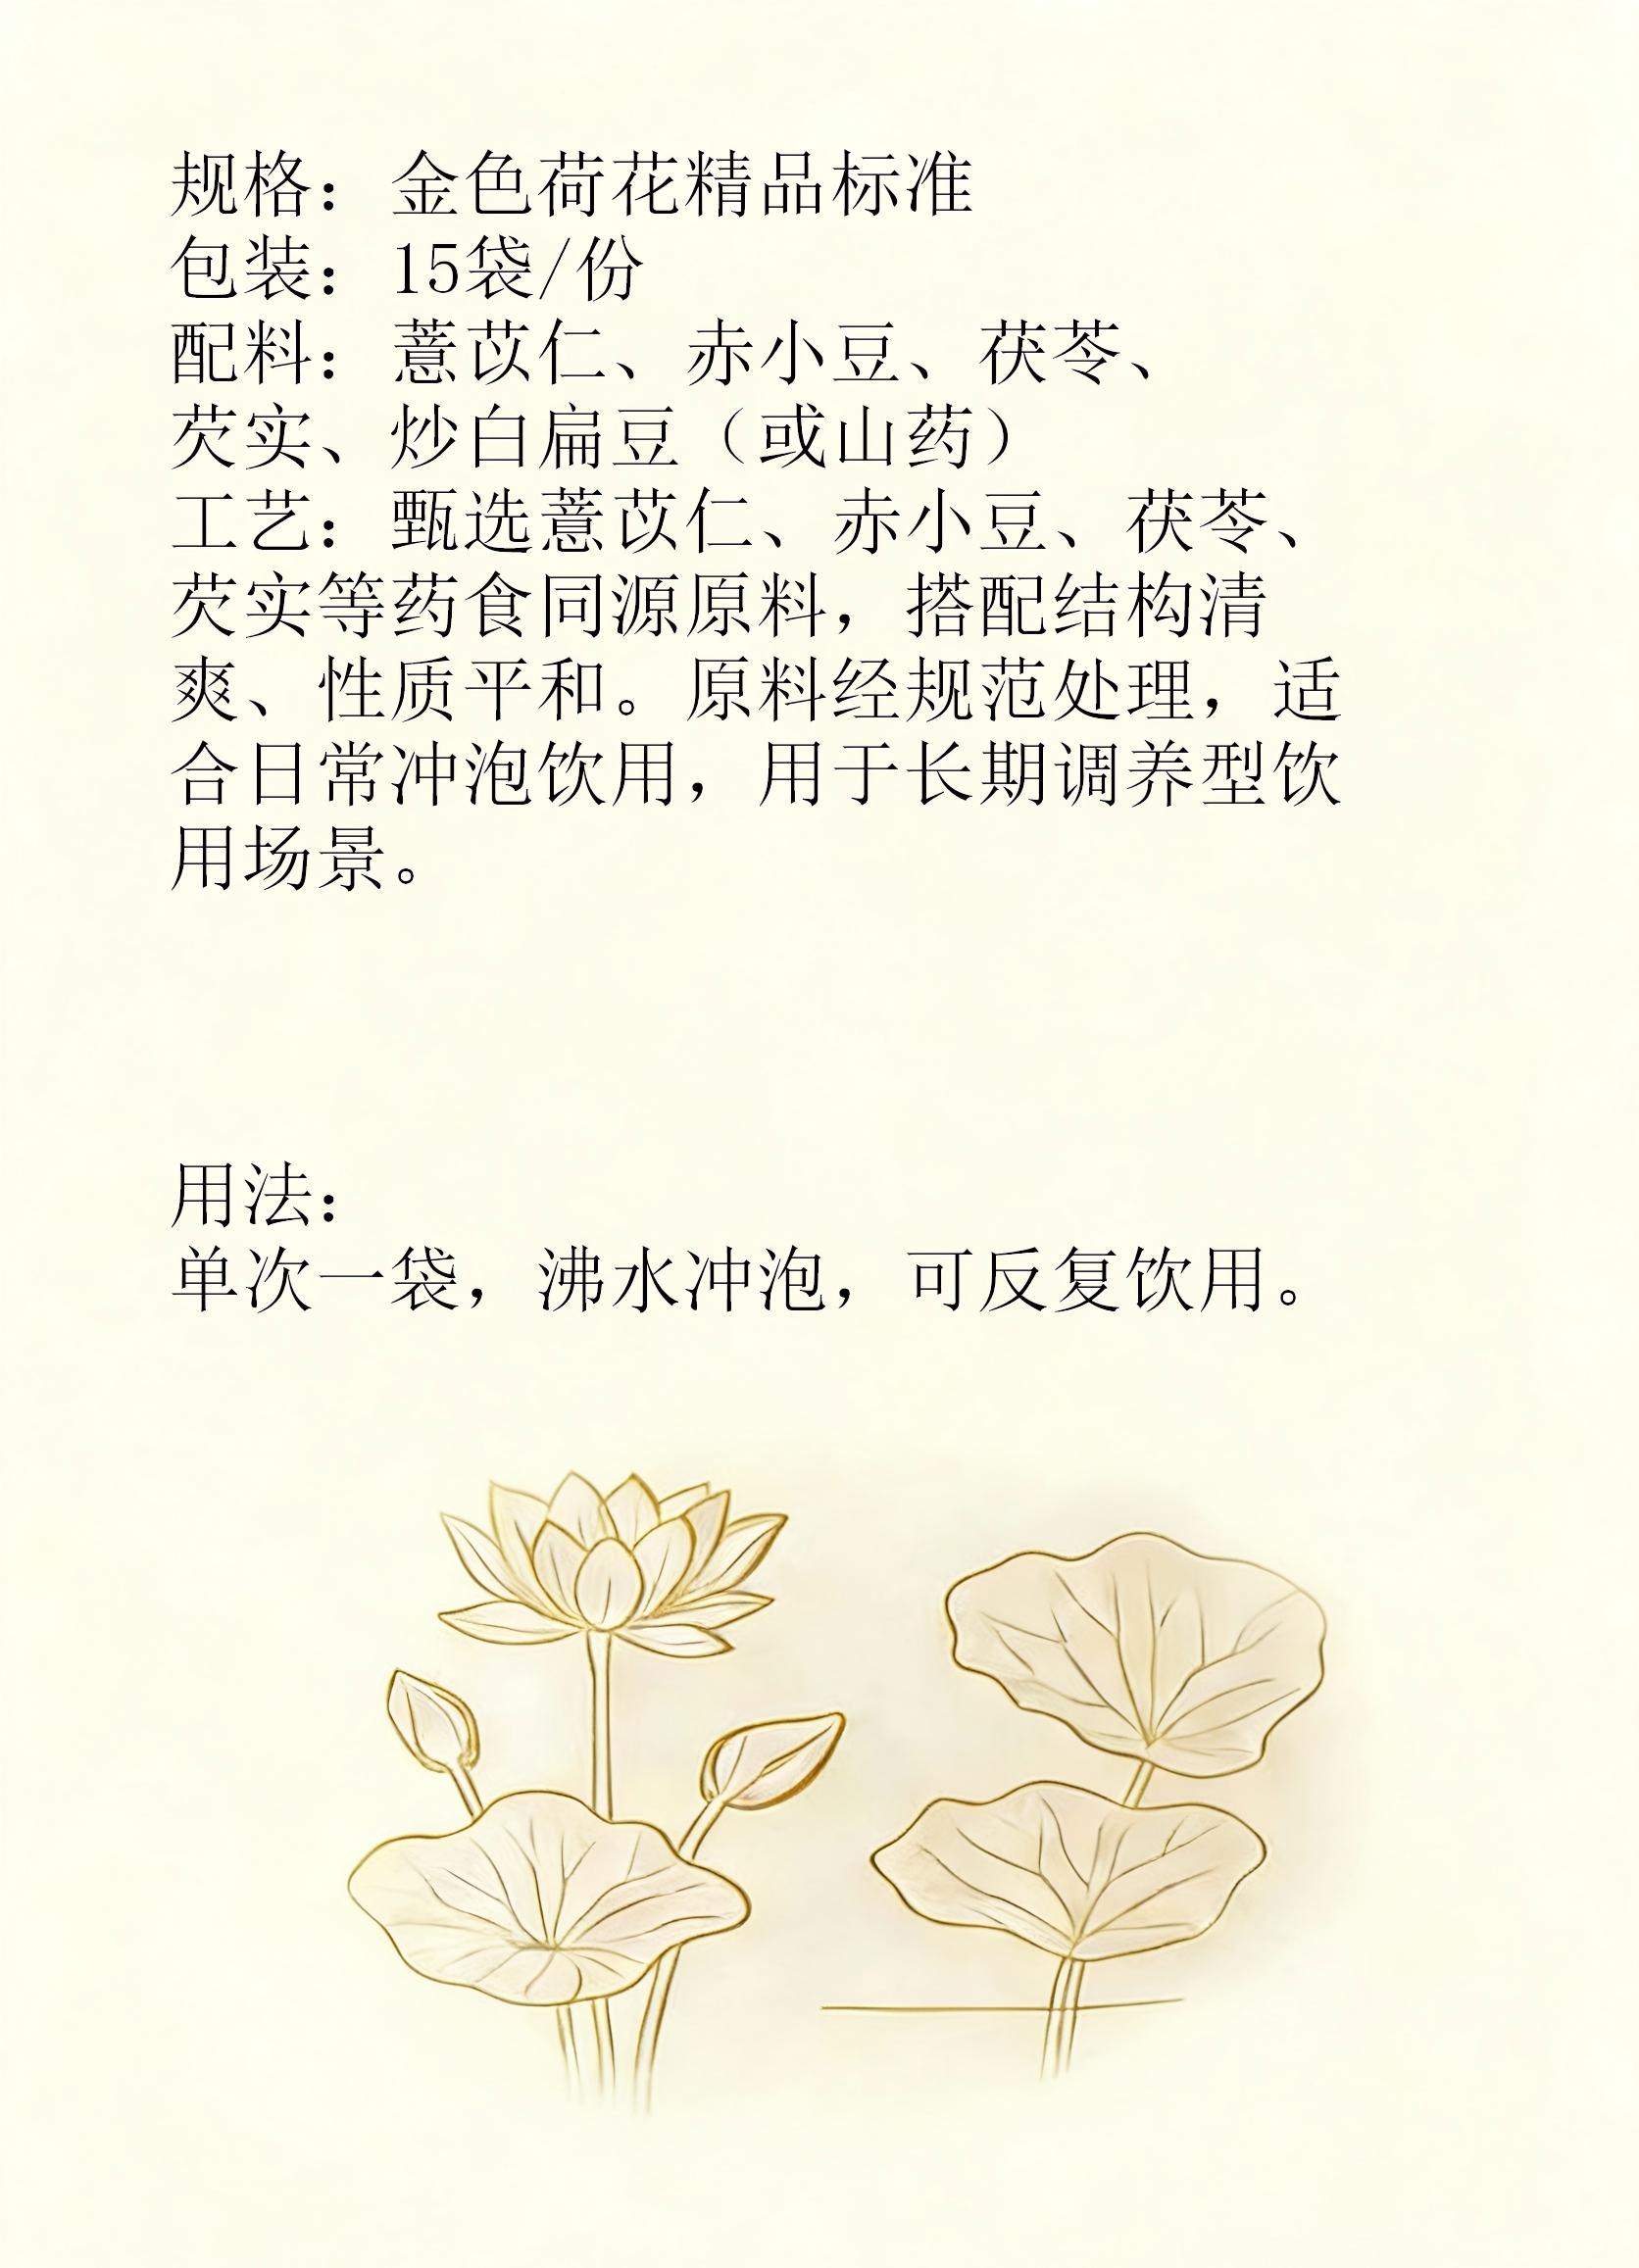 规格：金色荷花精品标准
包装：15袋/份
配料：薏苡仁、赤小豆、茯苓、
芡实、炒白扁豆（或山药）
工艺：甄选薏苡仁、赤小豆、茯苓、
芡实等药食同源原料，搭配结构清
爽、性质平和。原料经规范处理，适
合日常冲泡饮用，用于长期调养型饮
用场景。
用法：
单次一袋，沸水冲泡，可反复饮用。